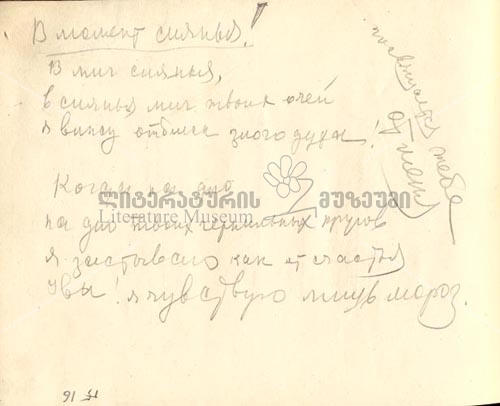 В момент сиянья!
В миг сиянья,
в сиянья миг твоих очей
я вижу отблеск злого духа!
Когда на дно
на дно твоих чернильных кругов
я застываю как от счастья
Увы! я чувствую лишь мороз.
посвящается тебе
от меня
ლიტერატურის მუზეუმი
Literature Museum
16